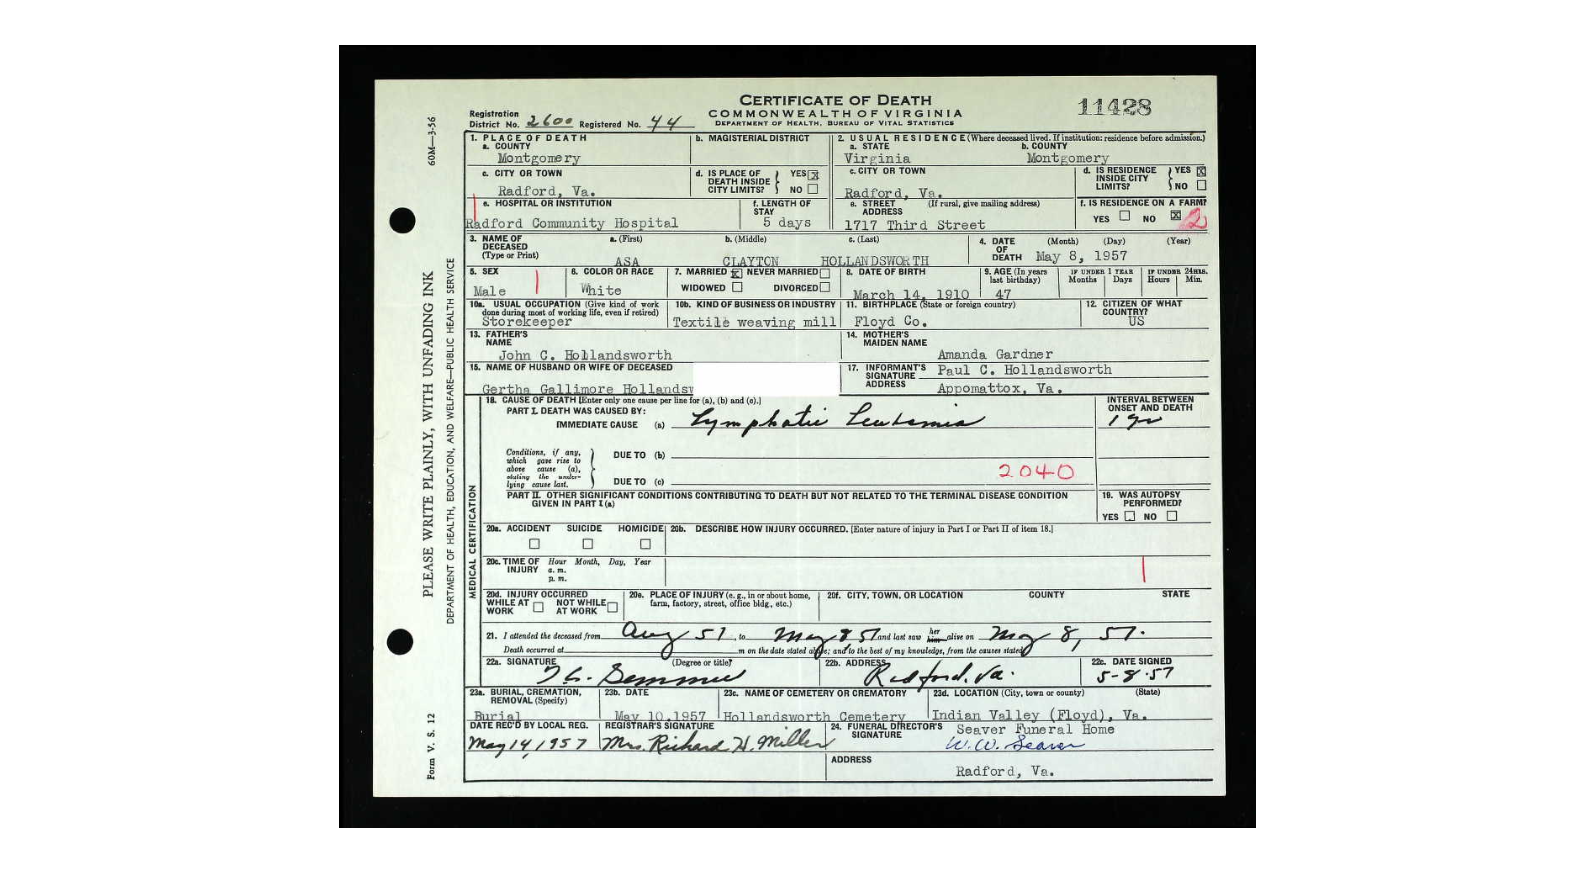 CERTIFICATE OF DEATH
COMMONWEALTH OF VIRGINIA
DEPARTMENT OF HEALTH, BUREAU OF VITAL STATISTICS
11428
Registration District No. 2600 Registered No. 44
60M—3-56
PLEASE WRITE PLAINLY, WITH UNFADING INK
DEPARTMENT OF HEALTH, EDUCATION, AND WELFARE—PUBLIC HEALTH SERVICE
Form V. S. 12
1. PLACE OF DEATH
a. COUNTY
Montgomery
b. MAGISTERIAL DISTRICT
2. USUAL RESIDENCE (Where deceased lived. If institution: residence before admission.)
a. STATE
Virginia
b. COUNTY
Montgomery
c. CITY OR TOWN
Radford, Va.
d. IS PLACE OF DEATH INSIDE CITY LIMITS? YES X NO
c. CITY OR TOWN
Radford, Va.
d. IS RESIDENCE INSIDE CITY LIMITS? YES X NO
e. HOSPITAL OR INSTITUTION
Radford Community Hospital
f. LENGTH OF STAY
5 days
e. STREET ADDRESS (If rural, give mailing address)
1717 Third Street
f. IS RESIDENCE ON A FARM?
YES NO X
2
3. NAME OF DECEASED (Type or Print)
a. (First) b. (Middle) c. (Last)
ASA CLAYTON HOLLANDSWORTH
4. DATE OF DEATH (Month) (Day) (Year)
May 8, 1957
5. SEX
Male
6. COLOR OR RACE
White
7. MARRIED X NEVER MARRIED
WIDOWED DIVORCED
8. DATE OF BIRTH
March 14, 1910
9. AGE (In years last birthday)
47
IF UNDER 1 YEAR
Months Days
IF UNDER 24HRS.
Hours Min.
10a. USUAL OCCUPATION (Give kind of work done during most of working life, even if retired)
Storekeeper
10b. KIND OF BUSINESS OR INDUSTRY
Textile weaving mill
11. BIRTHPLACE (State or foreign country)
Floyd Co.
12. CITIZEN OF WHAT COUNTRY?
US
13. FATHER'S NAME
John C. Hollandsworth
14. MOTHER'S MAIDEN NAME
Amanda Gardner
15. NAME OF HUSBAND OR WIFE OF DECEASED
Gertha Gallimore Hollandsw
17. INFORMANT'S SIGNATURE Paul C. Hollandsworth
ADDRESS Appomattox, Va.
MEDICAL CERTIFICATION
18. CAUSE OF DEATH [Enter only one cause per line for (a), (b) and (c).]
PART I. DEATH WAS CAUSED BY:
IMMEDIATE CAUSE (a) Lymphatic Leukemia
INTERVAL BETWEEN ONSET AND DEATH
1 yr
Conditions, if any, which gave rise to above cause (a), stating the underlying cause last.
DUE TO (b)
DUE TO (c)
2040
PART II. OTHER SIGNIFICANT CONDITIONS CONTRIBUTING TO DEATH BUT NOT RELATED TO THE TERMINAL DISEASE CONDITION GIVEN IN PART I (a)
19. WAS AUTOPSY PERFORMED?
YES NO
20a. ACCIDENT SUICIDE HOMICIDE
20b. DESCRIBE HOW INJURY OCCURRED. [Enter nature of injury in Part I or Part II of item 18.]
20c. TIME OF INJURY Hour Month, Day, Year
a. m.
p. m.
20d. INJURY OCCURRED
WHILE AT WORK NOT WHILE AT WORK
20e. PLACE OF INJURY (e. g., in or about home, farm, factory, street, office bldg., etc.)
20f. CITY, TOWN, OR LOCATION COUNTY STATE
21. I attended the deceased from Aug 51, to May 8 57 and last saw her him alive on May 8, 57.
Death occurred at m on the date stated above; and to the best of my knowledge, from the causes stated
22a. SIGNATURE (Degree or title)
22b. ADDRESS
Radford, Va.
22c. DATE SIGNED
5-8-57
23a. BURIAL, CREMATION, REMOVAL (Specify)
Burial
23b. DATE
May 10, 1957
23c. NAME OF CEMETERY OR CREMATORY
Hollandsworth Cemetery
23d. LOCATION (City, town or county) (State)
Indian Valley (Floyd), Va.
DATE REC'D BY LOCAL REG.
May 14, 1957
REGISTRAR'S SIGNATURE
Mrs. Richard H. Miller
24. FUNERAL DIRECTOR'S SIGNATURE
Seaver Funeral Home
W. W. Seaver
ADDRESS
Radford, Va.